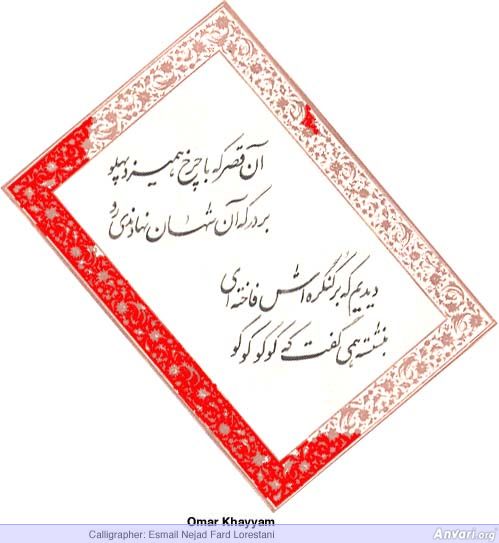 آن قصر که با چرخ همیزد پهلو
بر درگه آن شهان نهادندی رو
دیدیم که بر کنگره اش فاخته ای
بنشسته همی گفت که کوکوکوکو
Omar Khayyam
Calligrapher: Esmail Nejad Fard Lorestani
Anvari.org